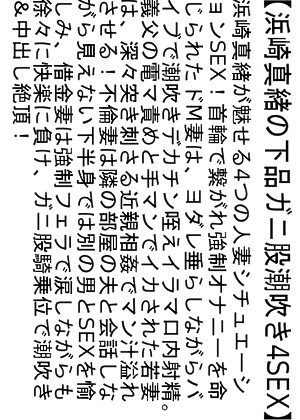 【浜崎真緒の下品ガニ股潮吹き4SEX】
浜崎真緒が魅せる4つの人妻シチュエーシ
ョンSEX！首輪で繋がれ強制オナニーを命
じられたドM妻は、ヨダレ垂らしながらバ
イブで潮吹きデカチン咥えイラマ口内射精。
義父の電マ責めと手マンでイカされた若妻
は、深々突き刺さる近親相姦でマン汁溢れ
させる！不倫妻は隣の部屋の夫と会話しな
がら見えない下半身では別の男とSEXを愉
しみ、借金妻は強制フェラで涙しながらも
徐々に快楽に負け、ガニ股騎乗位で潮吹き
&中出し絶頂！